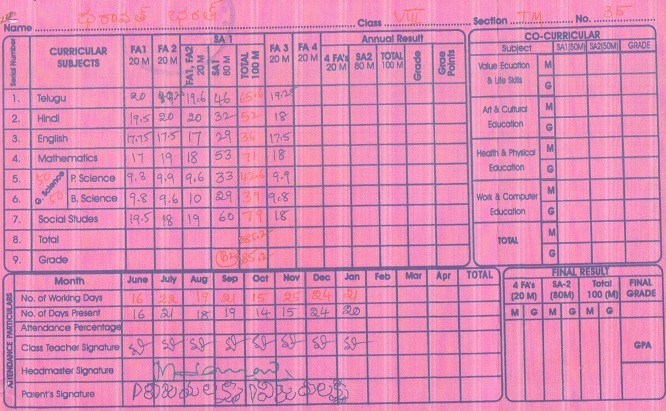 Name భరత్ Class VIII Section TM No. 35
Serial Number CURRICULAR SUBJECTS FA1 20 M FA 2 20 M SA 1 FA1, FA2 20 M SA 1 80 M TOTAL 100 M FA 3 20 M FA 4 20 M Annual Result 4 FA's 20 M SA2 80 M TOTAL 100 M Grade Grae Points
1. Telugu 20 19.6 46 65.6 19.2
2. Hindi 19.5 20 20 32 52 18
3. English 17.75 17.5 17 29 17.5
4. Mathematics 17 19 18 53 71 18
G. Science 50 50
5. P. Science 9.3 9.9 9.6 33 42.6 9.9
6. B. Science 9.8 9.6 10 29 39 9.8
7. Social Studies 19.5 18 19 60 79 18
8. Total
9. Grade
CO-CURRICULAR
Subject SA1(50M) SA2(50M) GRADE
Value Ecuation & Life Skills M G
Art & Cultural Education M G
Health & Physical Education M G
Work & Computer Education M G
TOTAL M G
ATTENDANCE PARTICULARS
Month June July Aug Sep Oct Nov Dec Jan Feb Mar Apr TOTAL
No. of Working Days 16 22 19 21 15 25 24 21
No. of Days Present 16 21 18 19 14 15 24 20
Attendance Percentage
Class Teacher Signature
Headmaster Signature
Parent's Signature
FINAL RESULT
4 FA's (20 M) SA-2 (80M) Total 100 (M) FINAL GRADE
M G M G M G
GPA